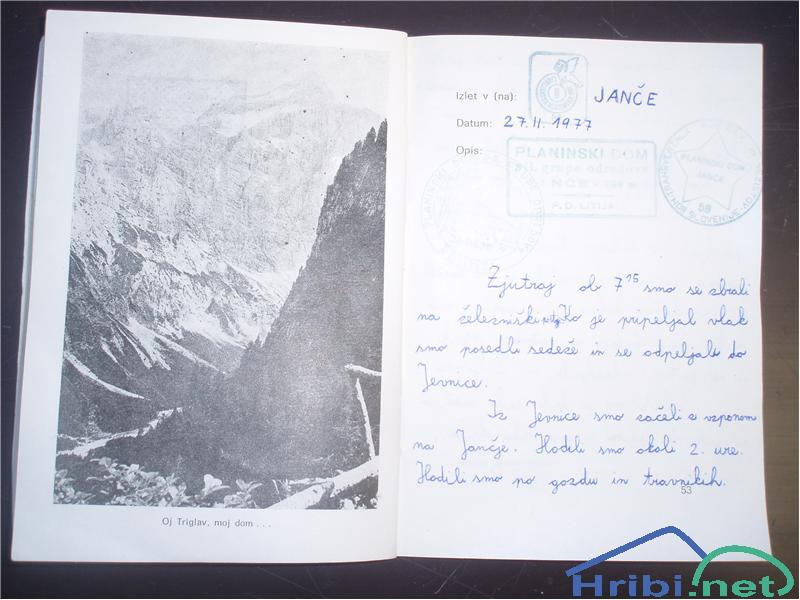 Oj Triglav, moj dom . . .
Izlet v (na): JANČE
Datum: 27. 11. 1977
Opis:
PLANINSKI DOM
P.D. LITIJA
PLANINSKI DOM
JANČE
58
Zjutraj ob 7 15 smo se zbrali
na železniški Ko je pripeljal vlak
smo posedli sedeže in se odpeljali do
Jevnice.
Iz Jevnice smo začeli z vzponom
na Jančje. Hodili smo okoli 2. ure.
Hodili smo po gozdu in travnikih.
53
Hribi.net